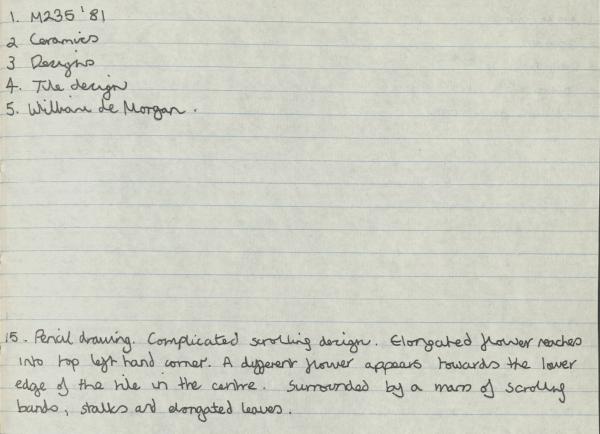 1. M235 '81
2 Ceramics
3 Designs
4. Tile design
5. William de Morgan.
15. Pencil drawing. Complicated scrolling design. Elongated flower reaches
into top left hand corner. A different flower appears towards the lower
edge of the tile in the centre. Surrounded by a mass of scrolling
bands, stalks and elongated leaves.